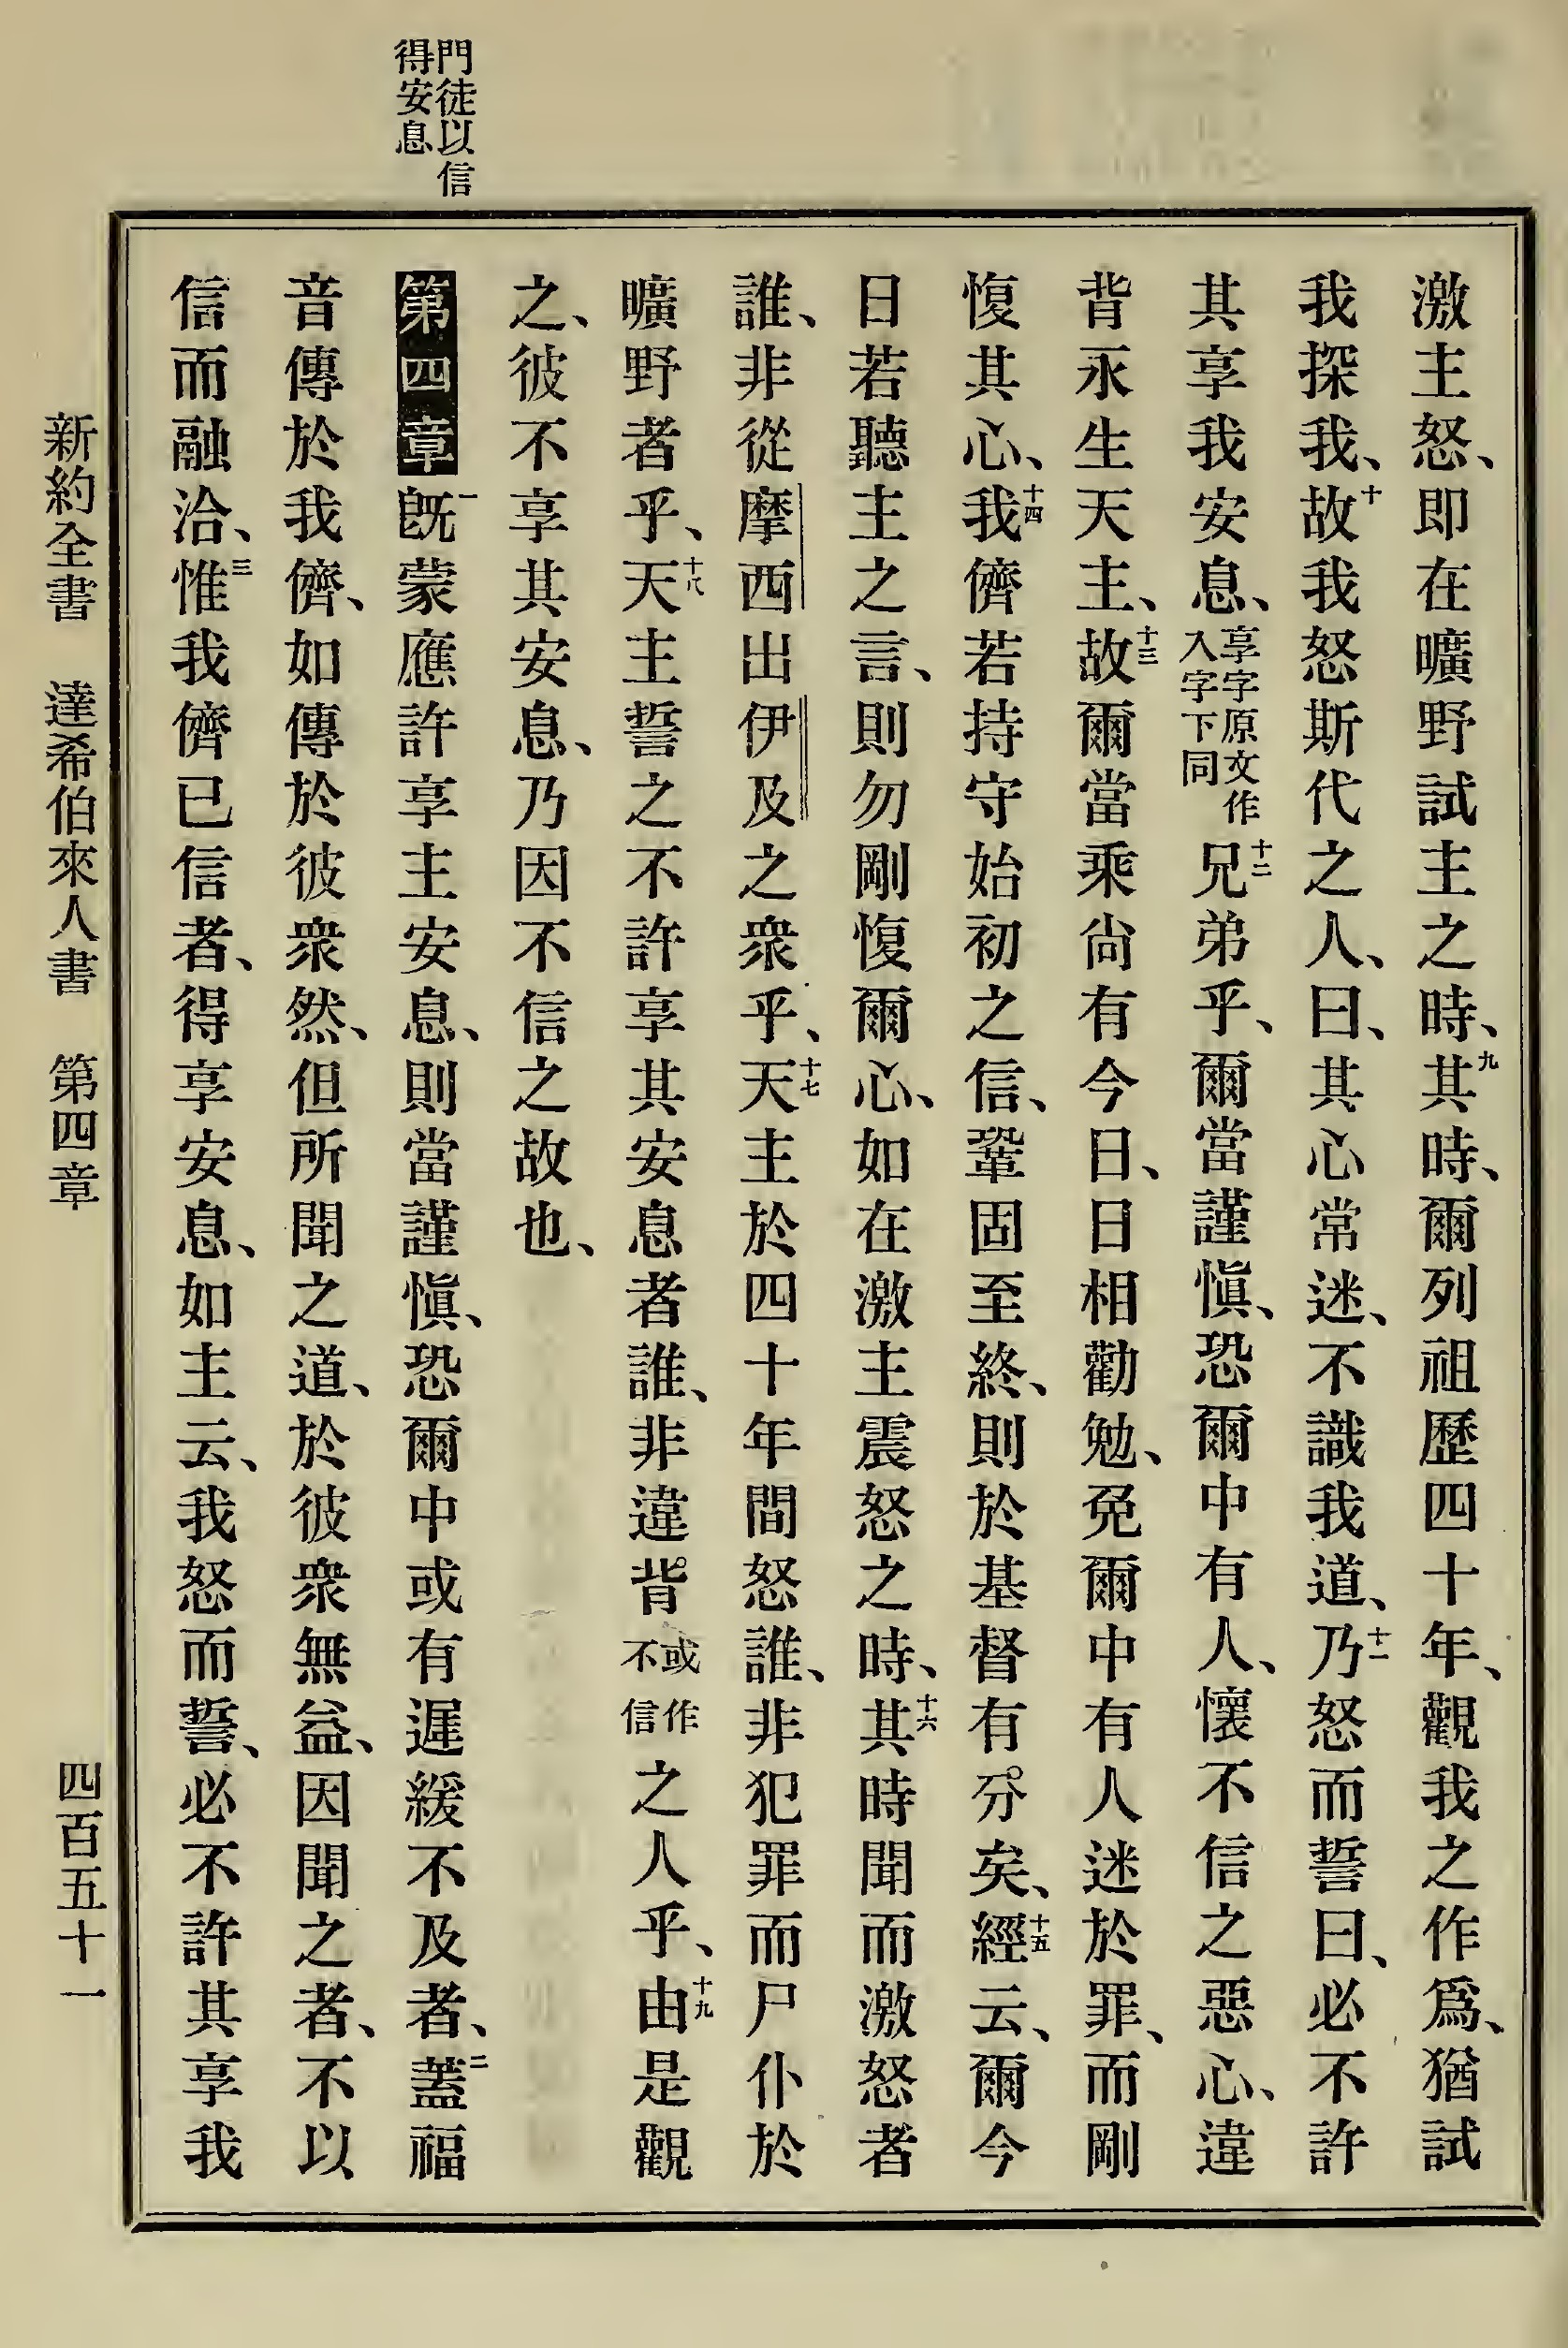 門徒以信
得安息
激主怒、即在曠野試主之時、九其時、爾列祖歷四十年、觀我之作爲、猶試
我探我、十故我怒斯代之人、曰、其心常迷、不識我道、十一乃怒而誓曰、必不許
其享我安息、享字原文作入字下同十二兄弟乎、爾當謹愼、恐爾中有人、懷不信之惡心、違
背永生天主、十三故爾當乘尙有今日、日相勸勉、免爾中有人迷於罪、而剛
愎其心、十四我儕若持守始初之信、鞏固至終、則於基督有分矣、十五經云、爾今
日若聽主之言、則勿剛愎爾心、如在激主震怒之時、十六其時聞而激怒者
誰、非從摩西出伊及之衆乎、十七天主於四十年間怒誰、非犯罪而尸仆於
曠野者乎、十八天主誓之不許享其安息者誰、非違背或作不信之人乎、十九由是觀
之、彼不享其安息、乃因不信之故也、
第四章一旣蒙應許享主安息、則當謹愼、恐爾中或有遲緩不及者、二蓋福
音傳於我儕、如傳於彼衆然、但所聞之道、於彼衆無益、因聞之者、不以
信而融洽、三惟我儕已信者、得享安息、如主云、我怒而誓、必不許其享我
新約全書 達希伯來人書 第四章 四百五十一